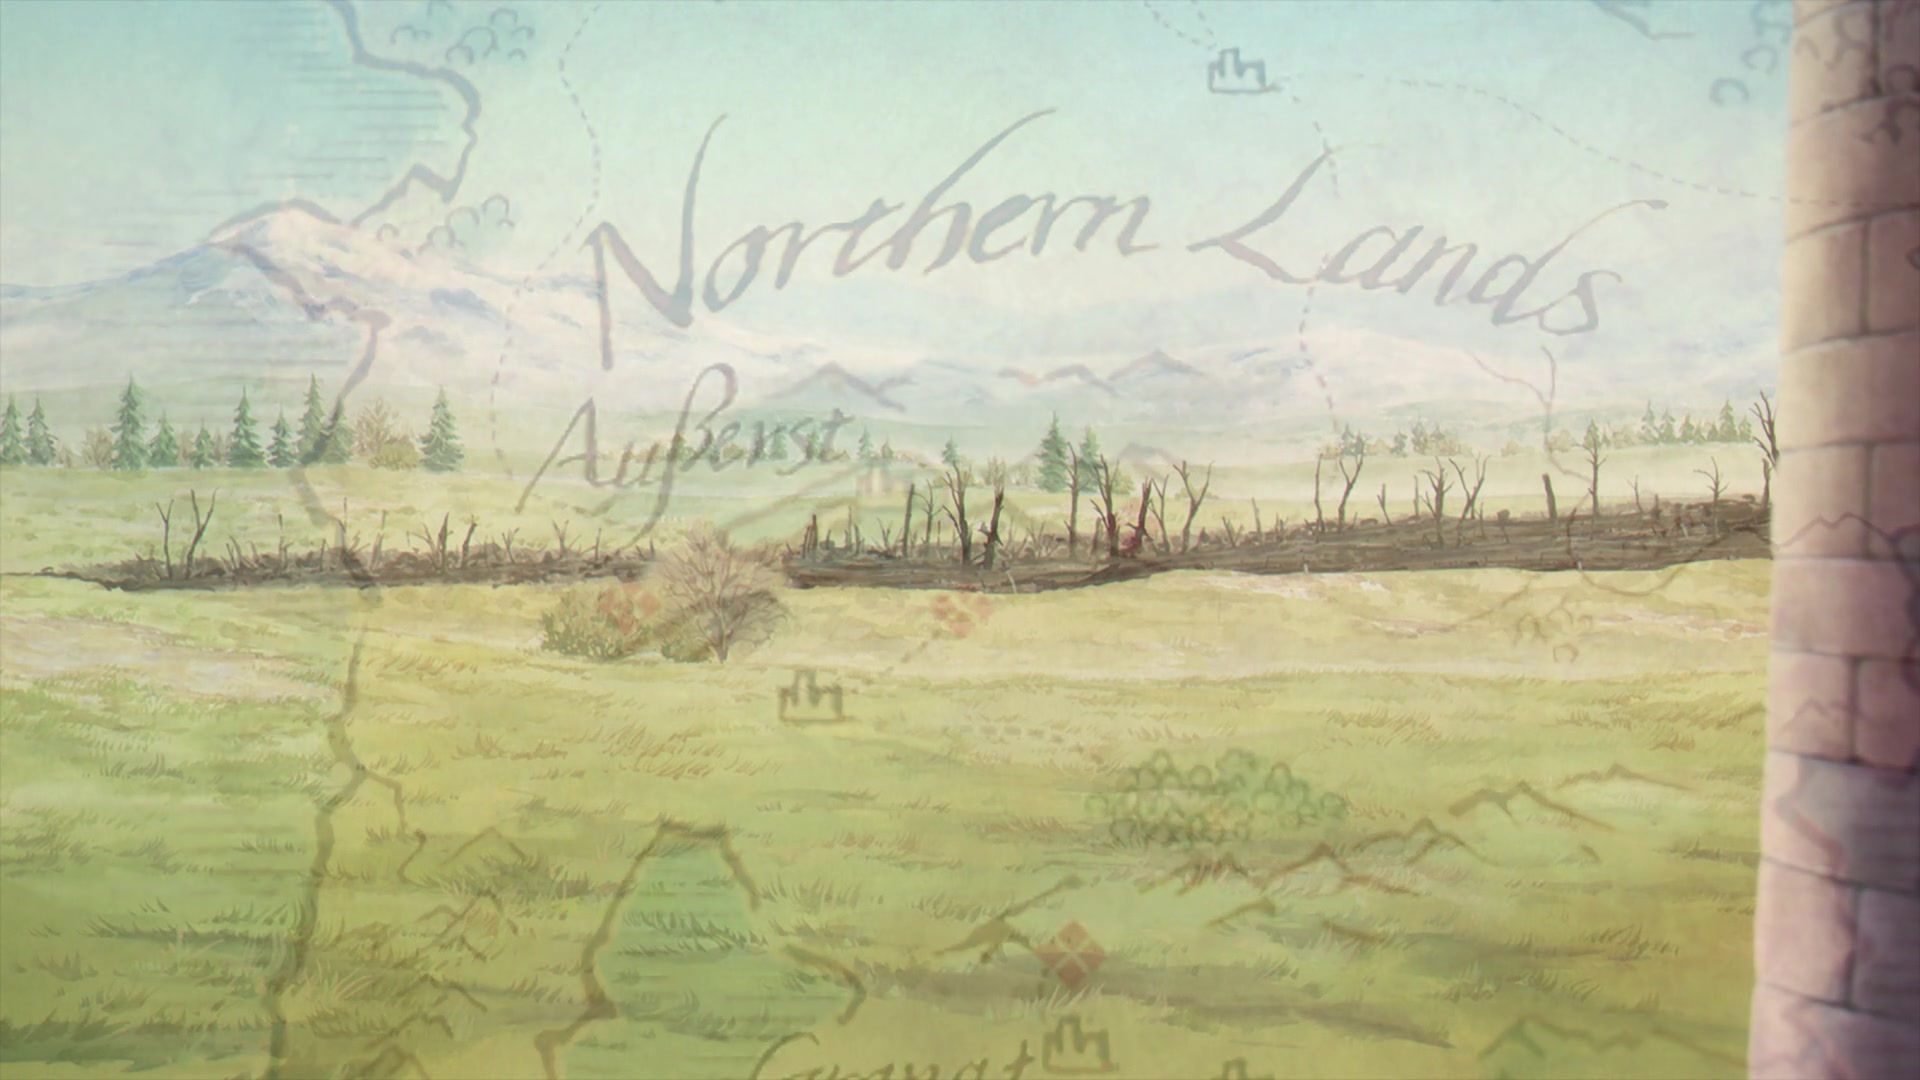 Northern Lands
Außerst